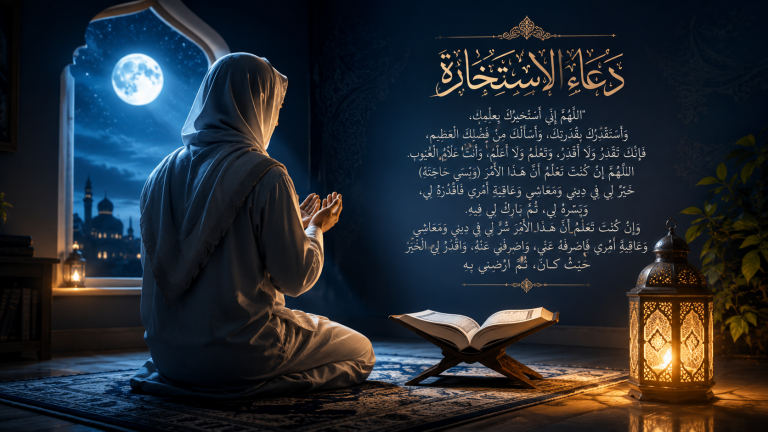 دُعَاءُ الاسْتِخَارَة
"اللَّهُمَّ إِنِّي أَسْتَخِيرُكَ بِعِلْمِكَ،
وَأَسْتَقْدِرُكَ بِقُدْرَتِكَ، وَأَسْأَلُكَ مِنْ فَضْلِكَ الْعَظِيمِ،
فَإِنَّكَ تَقْدِرُ وَلَا أَقْدِرُ، وَتَعْلَمُ وَلَا أَعْلَمُ، وَأَنْتَ عَلَّامُ الْغُيُوبِ.
اللَّهُمَّ إِنْ كُنْتَ تَعْلَمُ أَنَّ هَـذَا الْأَمْرَ (وَيُسَي حَاجَتَهُ)
خَيْرٌ لِي فِي دِينِي وَمَعَاشِي وَعَاقِبَةِ أَمْرِي فَاقْدُرْهُ لِي،
وَيَسِّرْهُ لِي، ثُمَّ بَارِكْ لِي فِيهِ.
وَإِنْ كُنْتَ تَعْلَمُ أَنَّ هَـذَا الْأَمْرَ شَرٌّ لِي فِي دِينِي وَمَعَاشِي
وَعَاقِبَةِ أَمْرِي فَاصْرِفْهُ عَنِّي، وَاصْرِفْنِي عَنْهُ، وَاقْدُرْ لِيَ الْخَيْرَ
حَيْثُ كَـانَ، ثُمَّ ارْضِنِي بِهِ